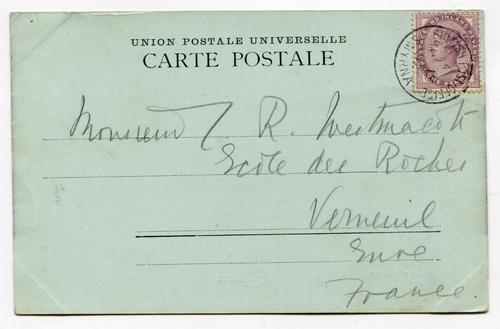 UNION POSTALE UNIVERSELLE
CARTE POSTALE
Monsieur J. R. Westmacott
Ecole des Roches
Verneuil
Eure
France.